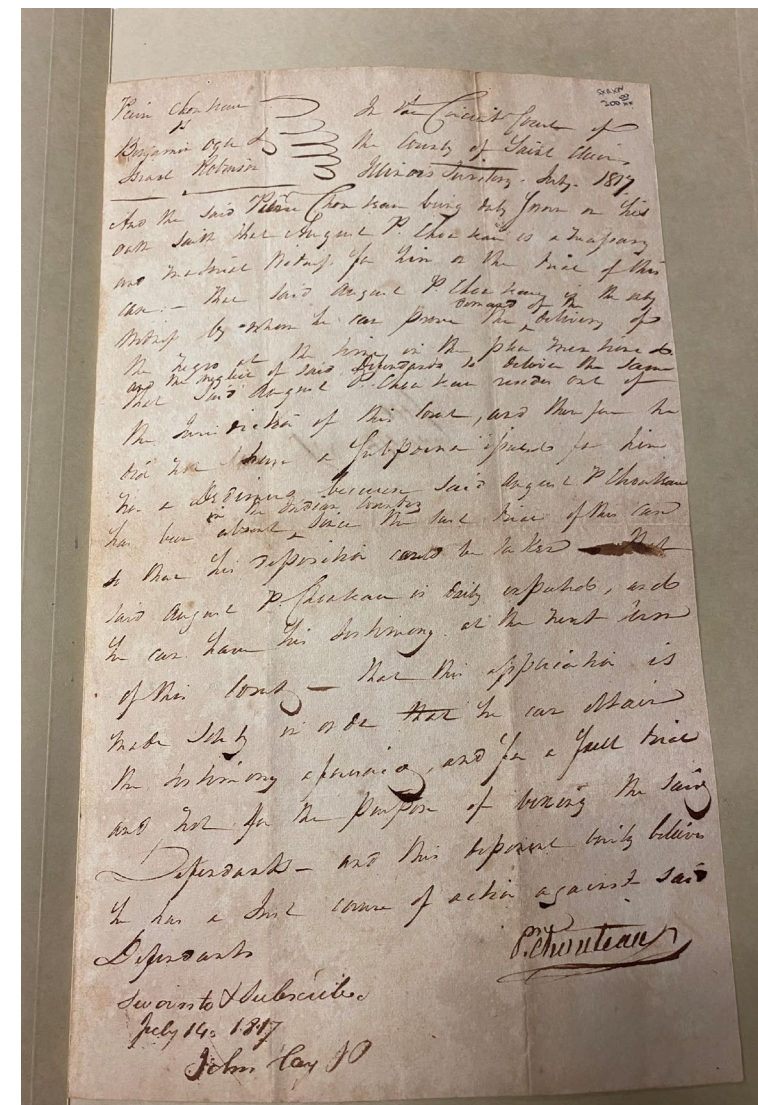 Pierre Chouteau
vs
Benjamin Ogle &
Israel Robinson
In the Circuit Court of
the County of Saint Clair
Illinois Territory - July - 1817
And the said Pierre Chouteau being duly sworn on his
oath saith that August P. Chouteau is a necessary
and material Witness for him on the trial of this
case - That said August P. Chouteau is the only
Witness by whom he can prove the demand of the delivery of
the negro at the time in the plea mentioned
and the neglect of said Defendants to deliver the same
that said August P. Chouteau resides out of
the Jurisdiction of this Court, and therefore he
did not have a Subpoena issued for him
nor a dedimus because said August P Chouteau
has been absent in the Indian Country since the last trial of this case
so that his deposition could be taken - That
said August P. Chouteau is daily expected, and
he can have his testimony at the next term
of this Court - that this application is
made solely in order that he can obtain
the testimony aforesaid, and for a full trial
and not for the purpose of vexing the said
Defendants - and this deponent verily believes
he has a Just cause of action against said
Defendants
Pre Chouteau
Sworn to & Subscribed
July 14. 1817
John Hay JP